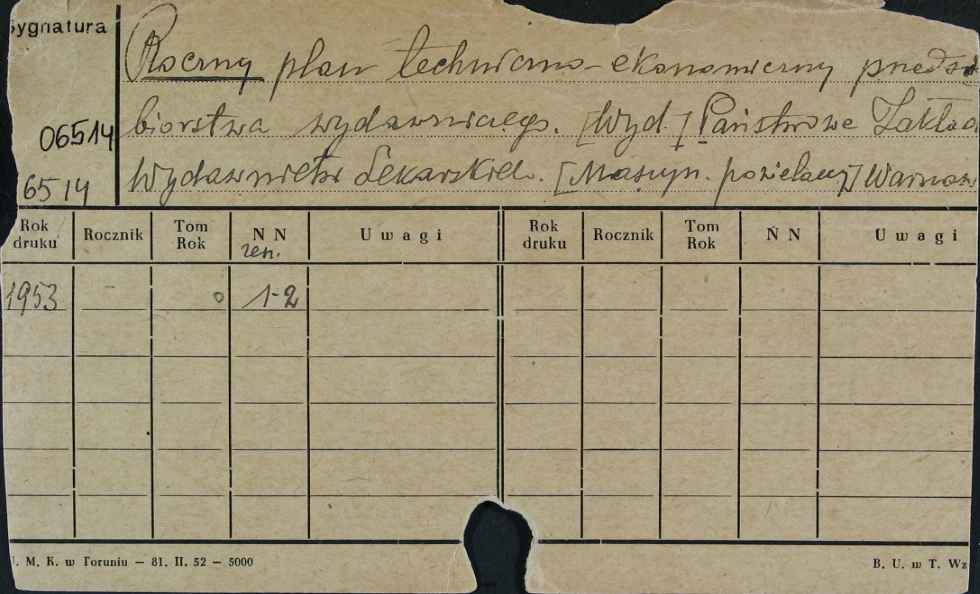 Sygnatura
Roczny plan techniczno-ekonomiczny przedsię
biorstwa wydawniczego. [Wyd.] Państwowe Zakład
06514
Wydawnictw Lekarskich. [Maszyn. powielany] Warszaw
6514
Rok druku Rocznik Tom Rok NN Uwagi Rok druku Rocznik Tom Rok NN Uwagi
zesz.
1953 1-2
. M. K. w Toruniu — 81. II. 52 — 5000 B. U. w T. Wz